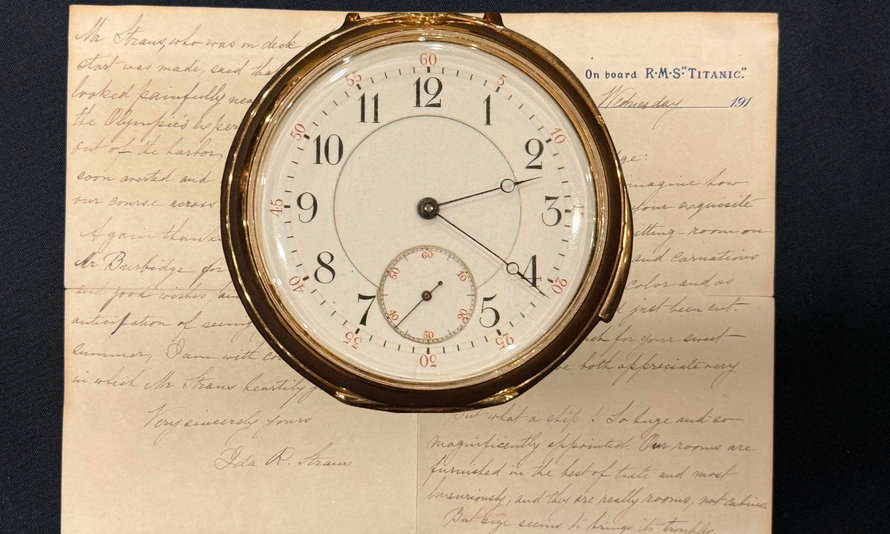 Mr Straus, who was on deck
start was made, said that
looked painfully nea
the Olympic's exper
out of the harbor,
soon averted and
our course across
Again thank
Mr Burbidge for
and good wishes an
anticipation of seeing
summer, I am with co
in which Mr Straus heartily j
Very sincerely yours
Ida R. Straus
On board R·M·S·"TITANIC."
Wednesday 191
ge:
imagine how
your exquisite
sitting-room on
and carnations
color and as
just been cut.
ch for your sweet
we both appreciate very
But what a ship! So huge and so
magnificently appointed. Our rooms are
furnished in the best of taste and most
luxuriously, and they are really rooms, not cabins.
But size seems to bring its troubles.
60 5 10 15 20 25 30 35 40 45 50 55
12 1 2 3 4 5 7 8 9 10 11
60 10 20 30 40 50